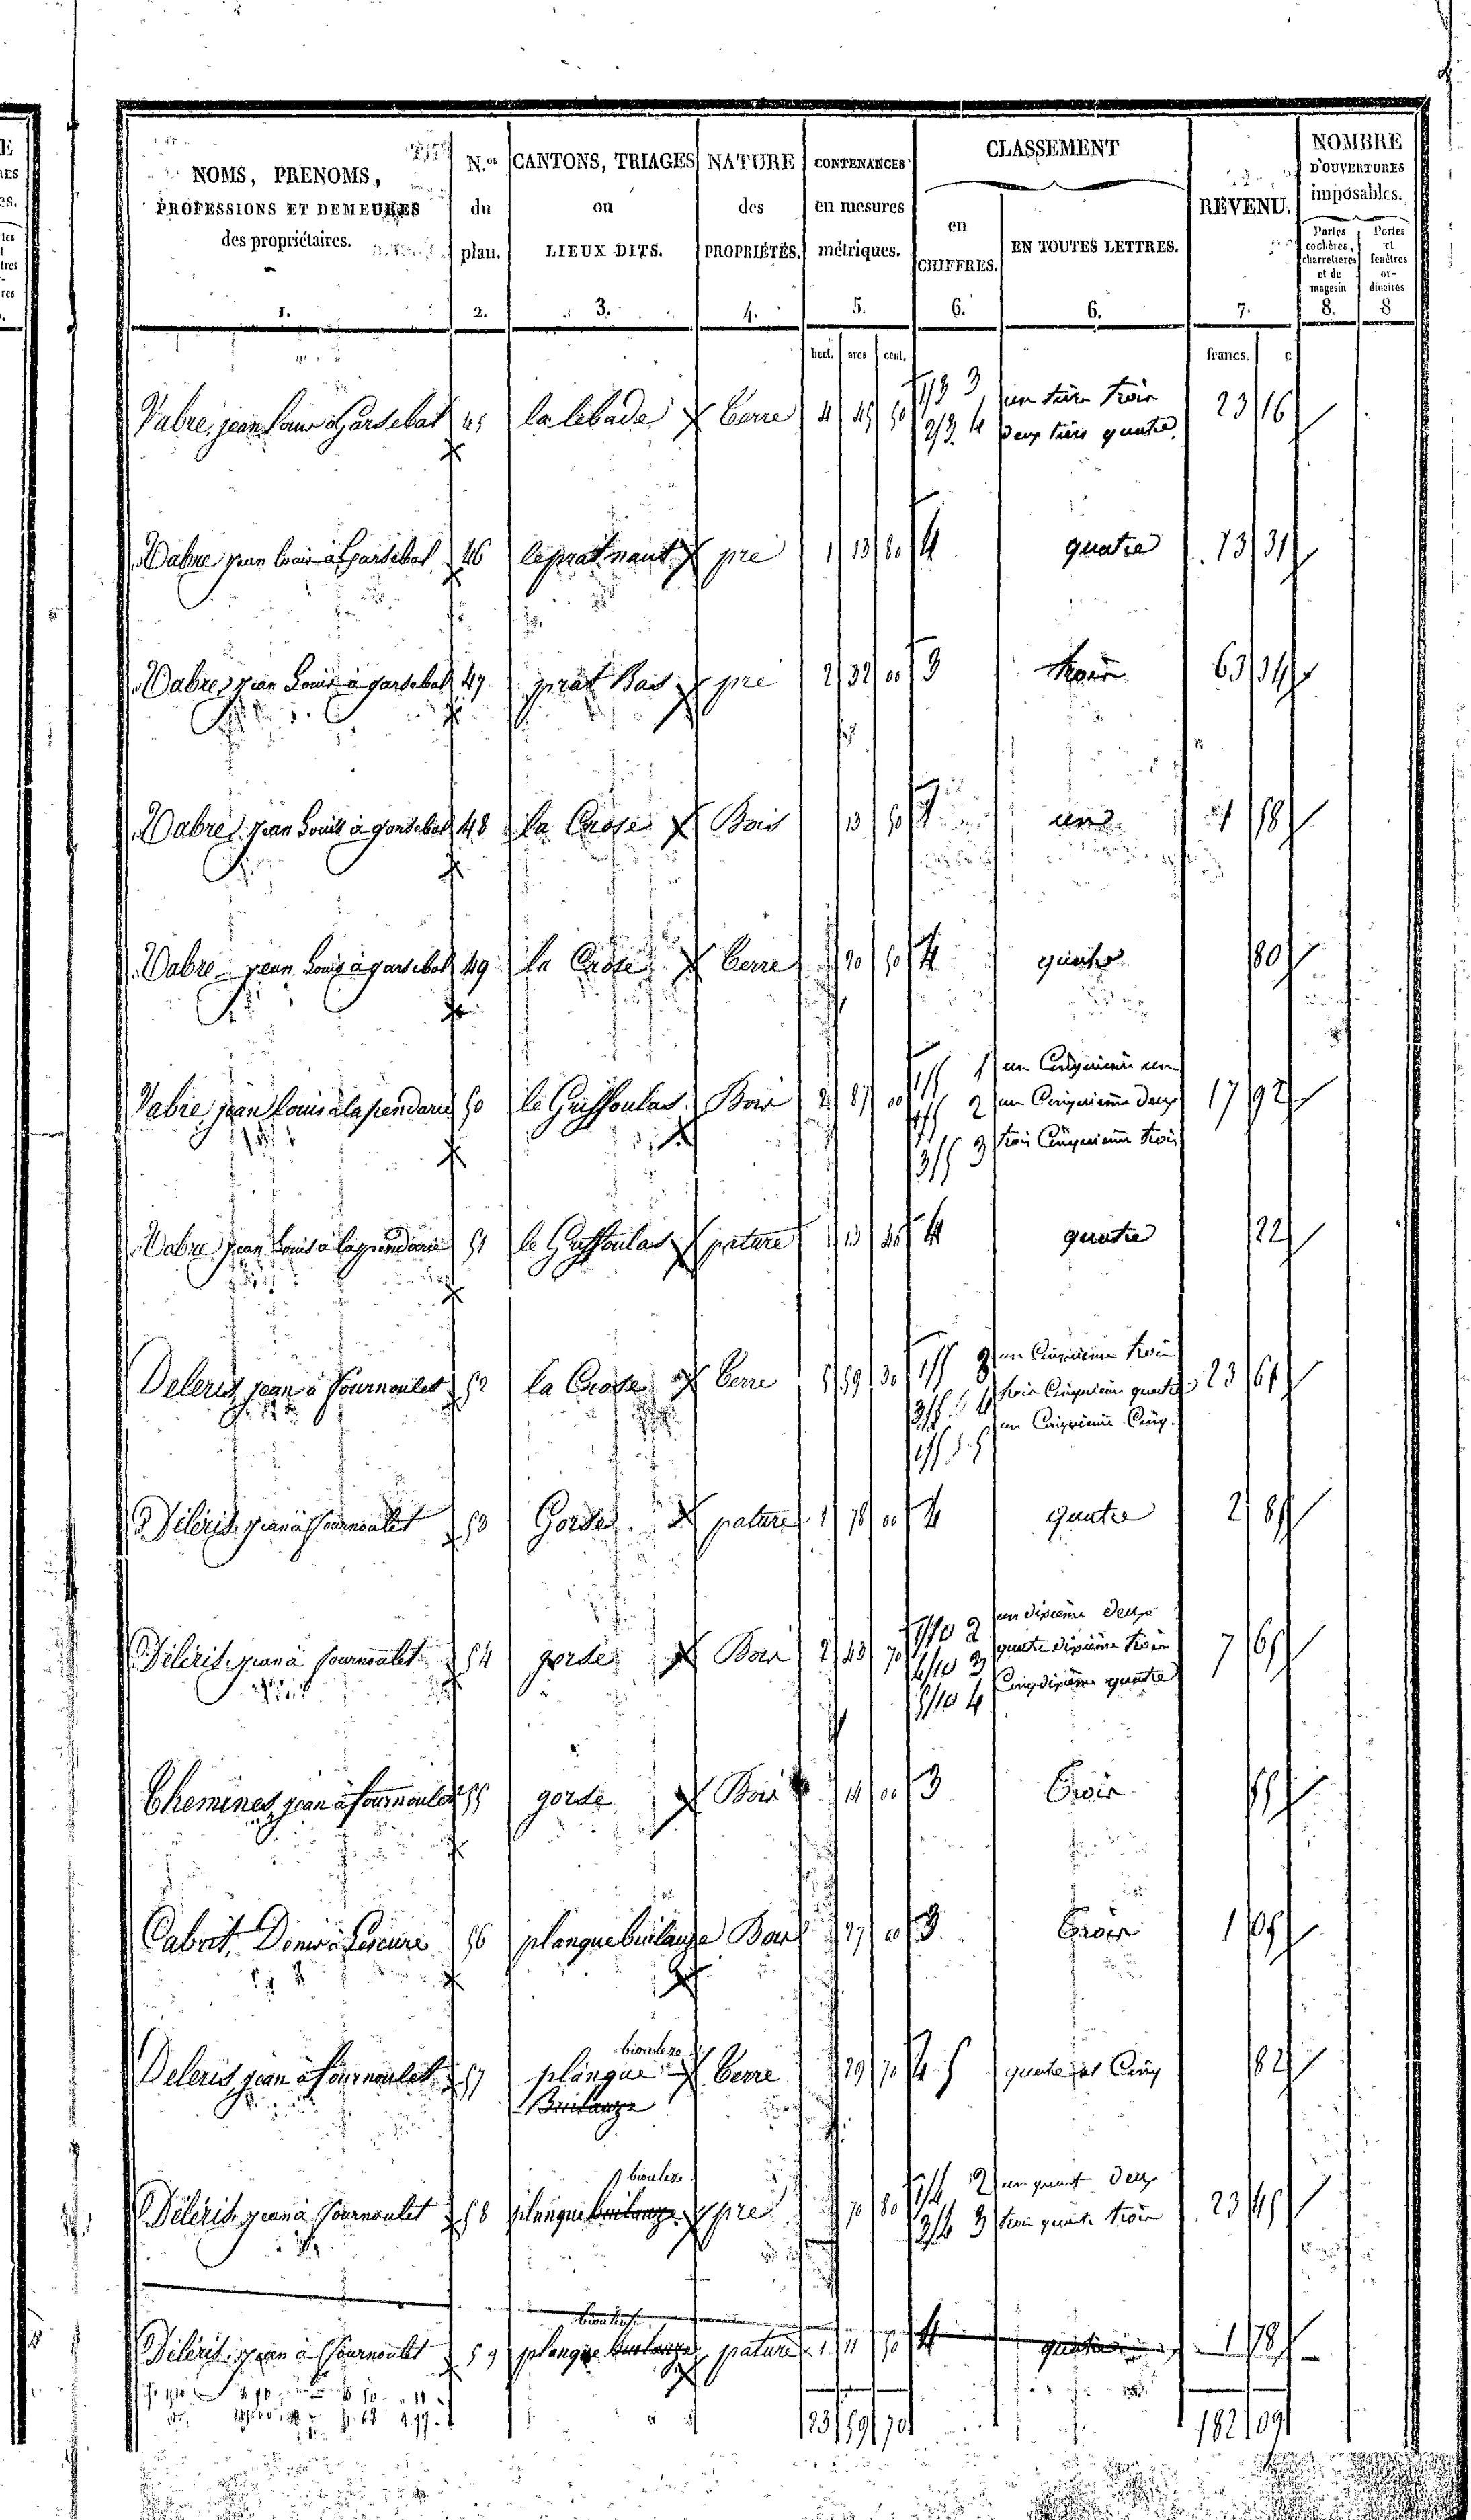 NOMS, PRENOMS, PROFESSIONS ET DEMEURES des propriétaires. 1.
N.os du plan. 2.
CANTONS, TRIAGES ou LIEUX DITS. 3.
NATURE des PROPRIÉTÉS. 4.
CONTENANCES en mesures métriques. 5.
CLASSEMENT
en CHIFFRES. 6.
EN TOUTES LETTRES. 6.
REVENU. 7.
NOMBRE D'OUVERTURES imposables.
Portes cochères, charretières et de magasin 8.
Portes et fenêtres ordinaires 8
hect. ares cent. francs. c
Vabre, jean Louis à Garsebat 45 la lebade terre 4 45 50 1/3 3 un tiers trois 23 16
2/3 4 deux tiers quatre
Vabre jean Louis à Garsebat 46 le prat naut pré 1 13 80 4 quatre 13 31
Vabre jean Louis à garsebat 47 prat Bas pré 2 32 00 3 trois 63 34
Vabre jean Louis à garsebat 48 la Crose Bois 13 50 1 une 1 58
Vabre jean Louis à garsebat 49 la Crose terre 20 50 4 quatre 80
Vabre jean Louis à la pendarie 50 le Griffoulas Bois 2 87 00 1/5 1 un Cinquième un 17 92
1/5 2 un Cinquième deux
3/5 3 trois Cinquième trois
Vabre jean Louis à la pendarie 51 le Griffoulas pature 13 4 quatre 22
Deleris jean à Fournoulet 52 la Crose terre 5 59 30 1/5 3 un Cinquième trois 23 61
3/5 4 trois Cinquième quatre
1/5 5 un Cinquième Cinq
Déléris jean à Fournoulet 53 Gorse pature 1 78 00 4 quatre 2 85
Déléris jean à Fournoulet 54 gorse Bois 2 43 70 1/10 2 un dixième deux 7 65
4/10 3 quatre dixième trois
5/10 4 Cinq dixième quatre
Chemines, jean à fournoulet 55 gorse Bois 14 00 3 trois 55
Cabrit, Denis à Lescure 56 planque Bois 27 00 3 trois 1 05
bioulese
Deleris jean à Fournoulet 57 planque terre 29 70 4 5 quatre et Cinq 82
bioulese
Déléris jean à Fournoulet 58 planque pré 70 80 1/4 2 un quart deux 23 45
3/4 3 trois quarts trois
Déléris jean à Fournoulet 59 planque pature 1 11 50 4 quatre 1 78
23 59 70 182 09